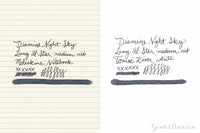 Diamine Night Sky
Lamy Al-Star, medium nib
Moleskine Notebook
xxxxxx
Diamine Night Sky
Lamy Al-Star, medium nib
Tomoe River white
xxxxxx